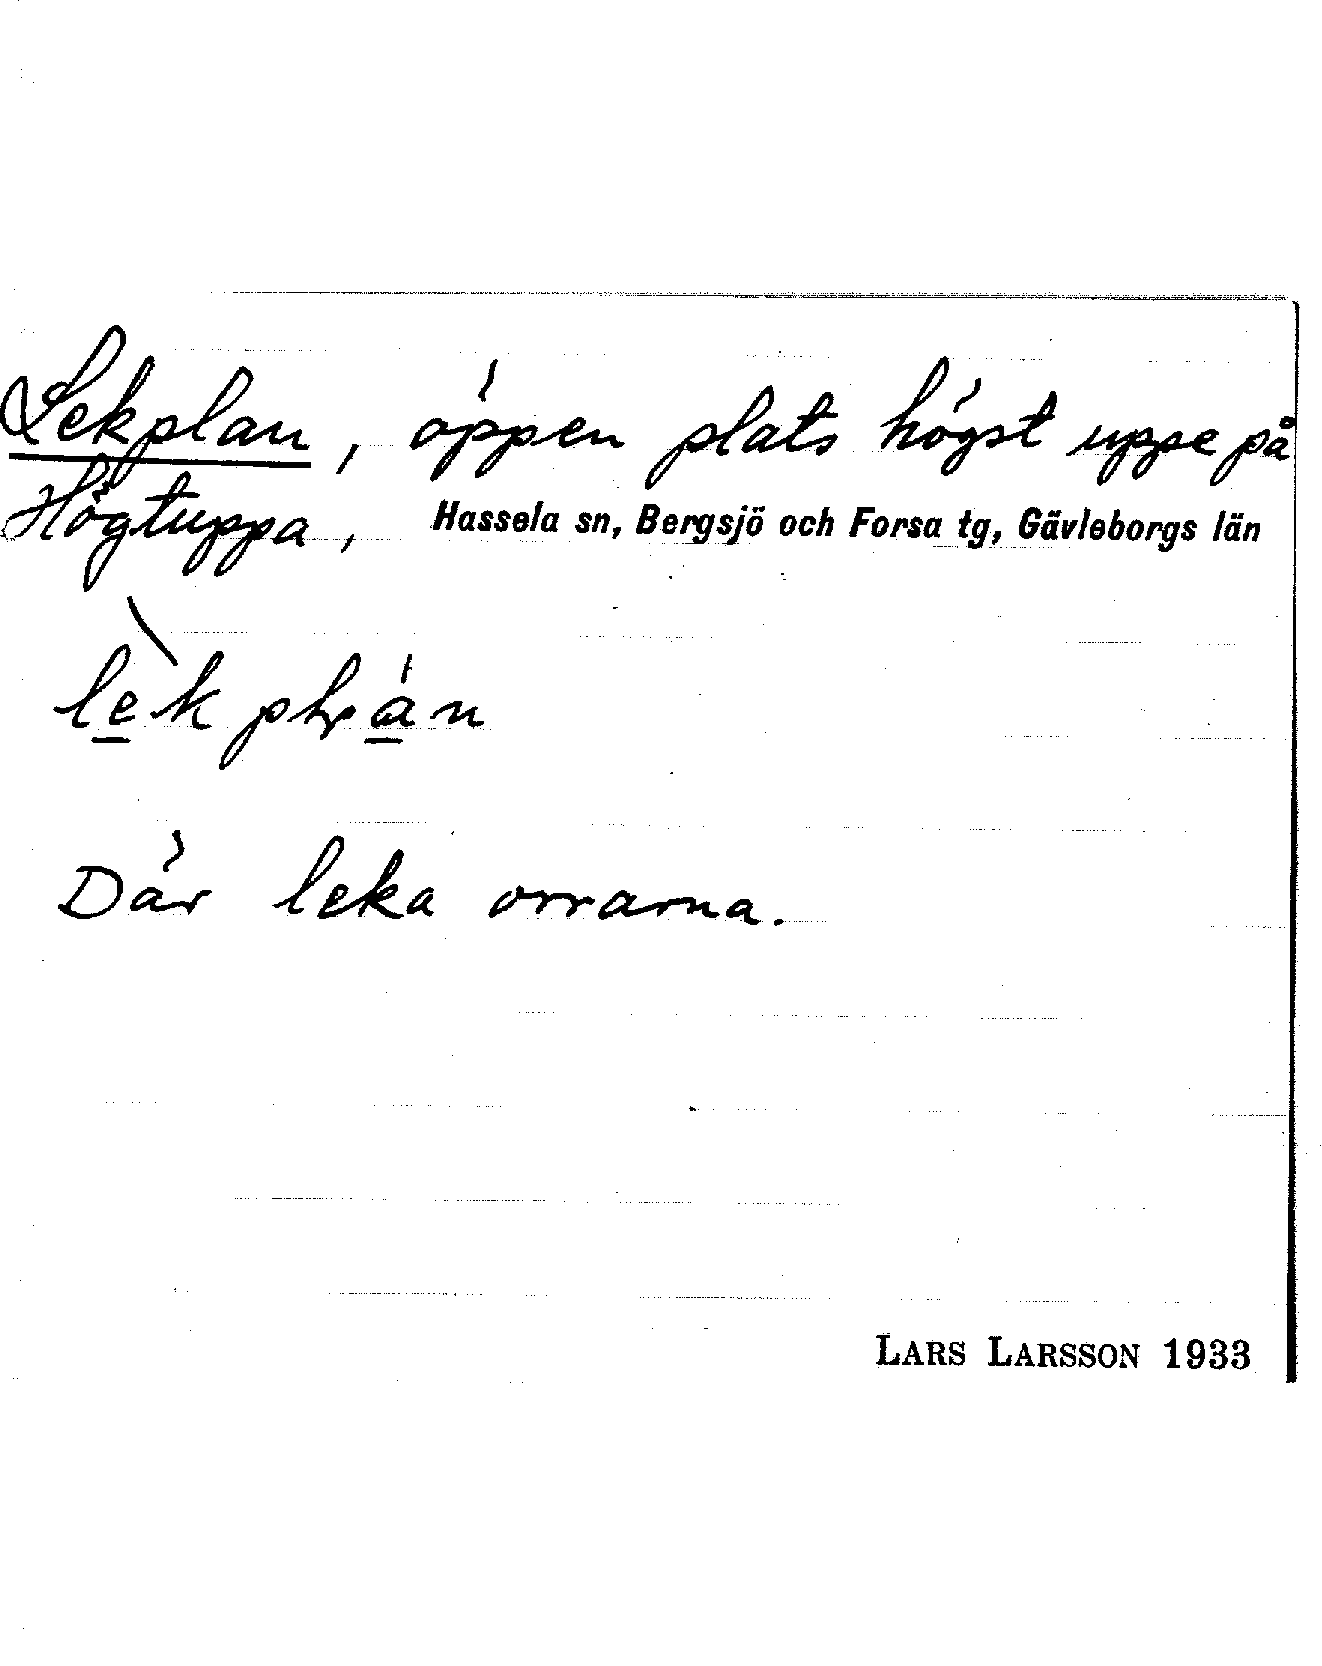 Lekplan, öppen plats högst uppe på
Högtuppa, Hassela sn, Bergsjö och Forsa tg, Gävleborgs län
Där leka orrarna.
LARS LARSSON 1933